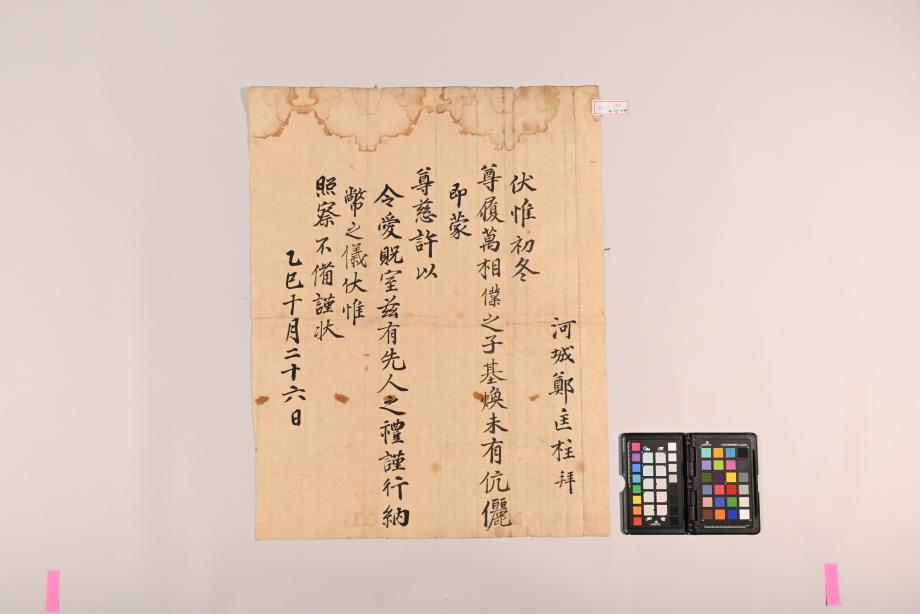 河城鄭匡柱拜
伏惟初冬
尊履萬相僕之子基煥未有伉儷
即蒙
尊慈許以
令愛貺室玆有先人之禮謹行納
幣之儀伏惟
照察不備謹状
乙巳十月二十六日